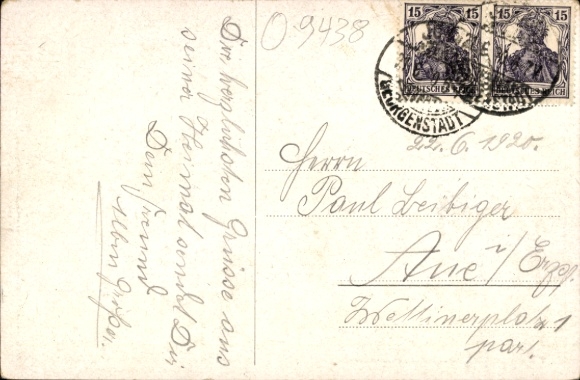 Die herzlichsten Grüsse aus
seiner Heimat sendet Dir
Dein Freund
Albin
O 9438
15 15
15 15
DEUTSCHES REICH
JOHANN
GEORGENSTADT
22.6.1920.
Herrn
Paul Leibiger
Aue i/Erzg.
Wettinerplatz 1
part.